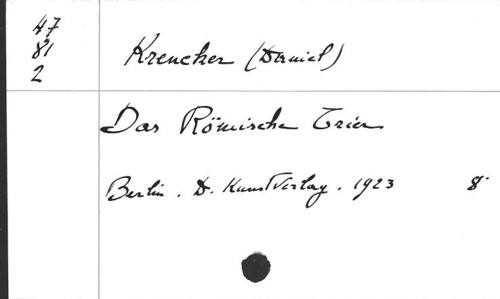 47
81
2
Krencker (Daniel)
Das Römische Trier
Berlin. D. Kunstverlag. 1923 8°